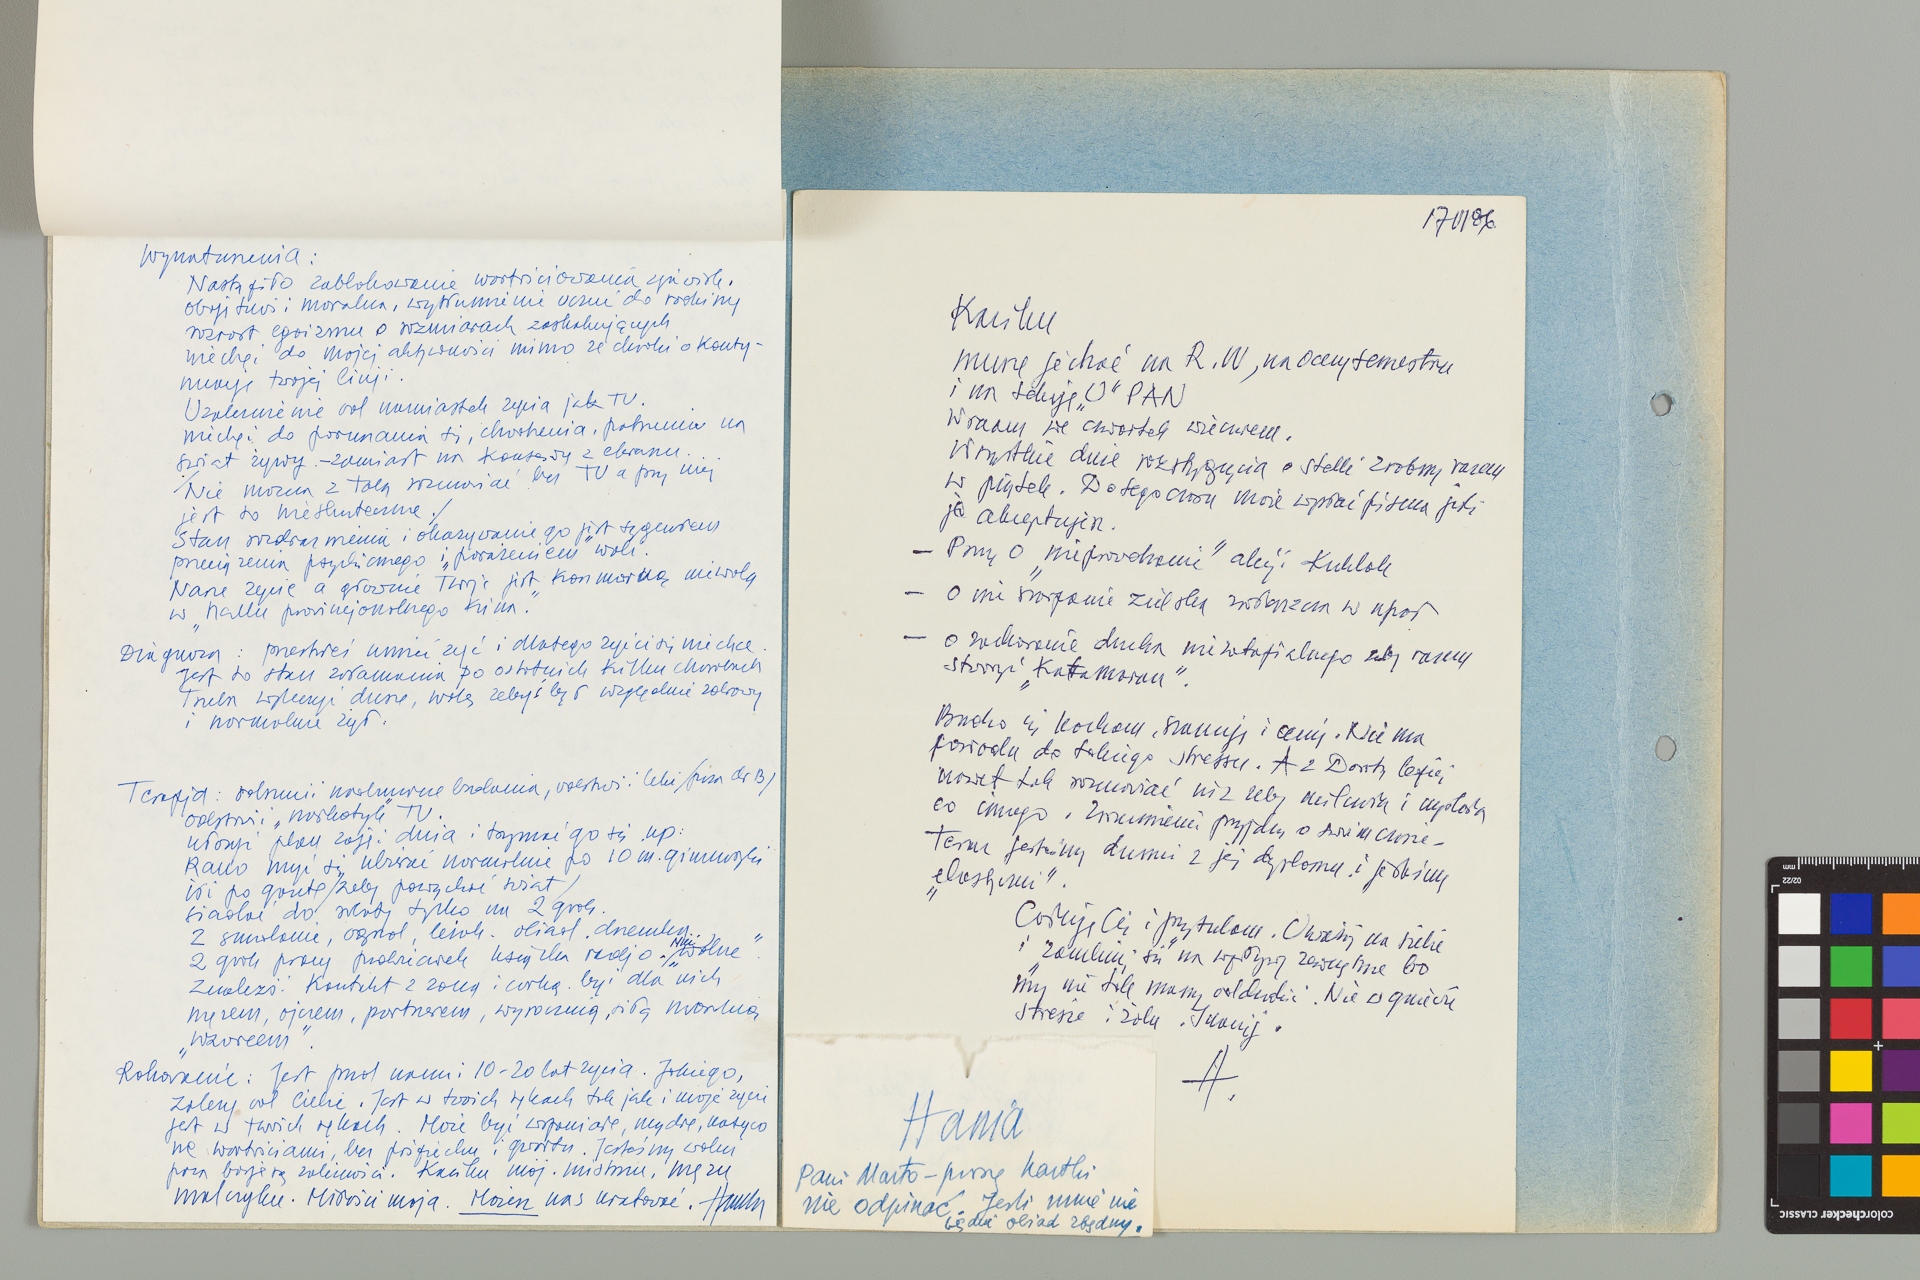 Wynaturzenia:
Nastąpiło zablokowanie wartościowania zjawisk.
obojętność moralna, wytłumienie uczuć do rodziny
wzrost egoizmu o rozmiarach zaskakujących
niechęć do mojej aktywności mimo że chodzi o konty-
nuację twojej linji.
Uzależnienie od namiastek życia jak TV.
niechęć do poruszania się, chodzenia, patrzenia na
świat żywy - zamiast na konserwy z ekranu...
/Nie można z Tobą rozmawiać bez TV a przy niej
jest to nieskuteczne./
Stan rozdrażnienia i okazywanie go jest sygnałem
przeciążenia psychicznego i „porażeniem" woli.
Nasze życie a głównie Twoje jest koszmarną niewolą
w „hallu prowincjonalnego kina."
Diagnoza: przestałeś umieć żyć i dlatego żyć Ci się nie chce.
Jest to stan załamania po ostatnich kilku chorobach
Trzeba wyleczyć duszę, wolę żebyś był względnie zdrowy
i normalnie żył.
Terapja: odsunąć nadmierne badania, odstawić leki /poza dr B/
odstawić „narkotyk" TV.
ułożyć plan zajęć dnia i trzymać go się np:
Rano myć się ubierać normalnie po 10 m. gimnastyki
iść po gazetę /żeby powąchać świat/
siadać do roboty tylko na 2 godz.
2 śniadanie, ogród, leżak. obiad. drzemka.
2 godz pracy podwieczorek książka radjo. „Nie wolne".
Znaleźć kontakt z żoną i córką. być dla nich
mężem, ojcem, partnerem, wyrocznią, siłą moralną
„wzorcem".
Rokowanie: Jest przed nami 10-20 lat życia. Jakiego,
zależy od Ciebie. Jest w twoich rękach tak jak i moje życie
jest w twoich rękach. Może być wspaniałe, mądre, nasyco
ne wartościami, bez pośpiechu i gwałtu. Jesteśmy wolni
poza bożą zależności. Kaziku mój. mistrzu, mężu
molczyku. Miłości moja. Możesz nas uratować. Hanka
17 VI 86
Kaziku
muszę jechać na R.W, na oceny semestru
i na sekcję „U" PAN
Wracam we czwartek wieczorem.
Wszystkie dalsze rozstrzygnięcia o stelli zrobimy razem
w piątek. Do tego czasu może wysłać pisma jeśli
je akceptujesz.
- Proszę o „nieprowadzenie" akcji Kuklok
- o nie szarpanie zielska zwłaszcza w upał
- o zachowanie ducha niezatapialnego aby razem
stworzyć „Katamaran".
Bardzo cię kocham, szanuję i cenię. Nie ma
powodu do takiego stressu. A z Dorotą lepiej
nawet tak rozmawiać niż żeby milczała i myślała
co innego. Zrozumienie przyjdzie o swoim czasie -
Teraz jesteśmy dumni z jej dyplomu i jesteśmy
„elastyczni".
Całuję Cię i przytulam. Uważaj na siebie
i „zamknij się" na wpływy zewnętrzne bo
my nie tak mamy oddychać. Nie w gniewie
stresie i żalu. Śpij.
H.
Hania
Pani Marto - proszę kartki
nie odpinać. Jeśli mnie nie
będzie obiad zbędny.